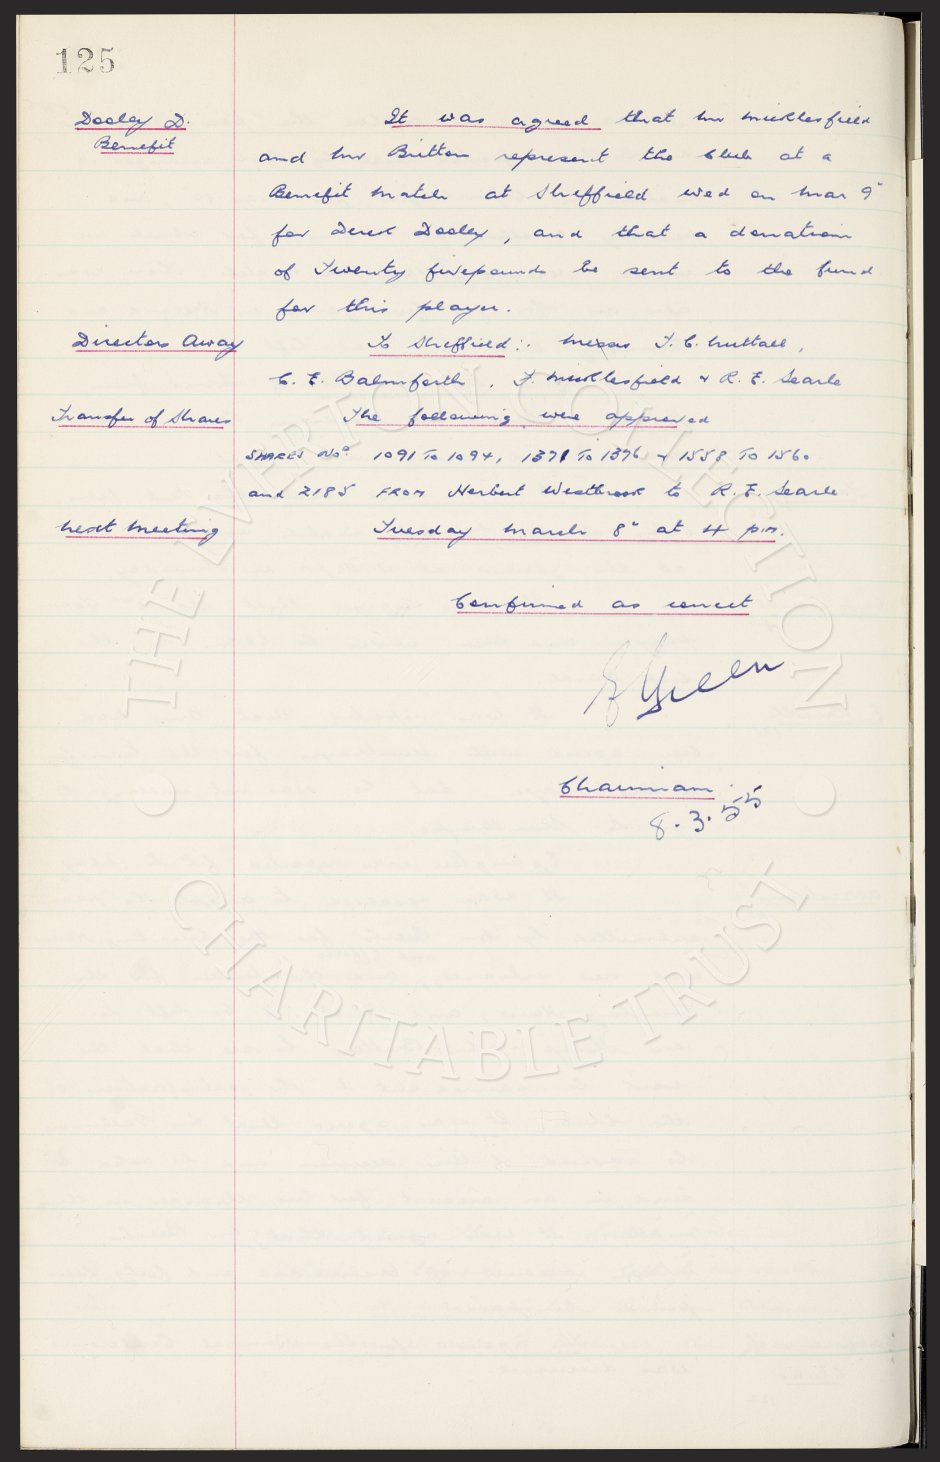 125
Dooley D.
Benefit
It was agreed that Mr Micklesfield
and Mr Britton represent the Club at a
Benefit Match at Sheffield Wed on Mar 9"
for Derek Dooley, and that a donation
of Twenty five pounds be sent to the fund
for this player.
Directors Away
To Sheffield:. Messrs T. C. Nuttall,
C. E. Balmforth, F. Micklesfield & R. E. Searle
Transfer of Shares
The following were approved
SHARES Nos 1091 To 1094, 1371 To 1376 & 1558 To 1560
and 2185 FROM Herbert Westbrook to R. E. Searle
Next Meeting
Tuesday March 8" at 4 p.m.
Confirmed as correct
E Green
Chairman.
8.3.55
THE EVERTON COLLECTION
CHARITABLE TRUST